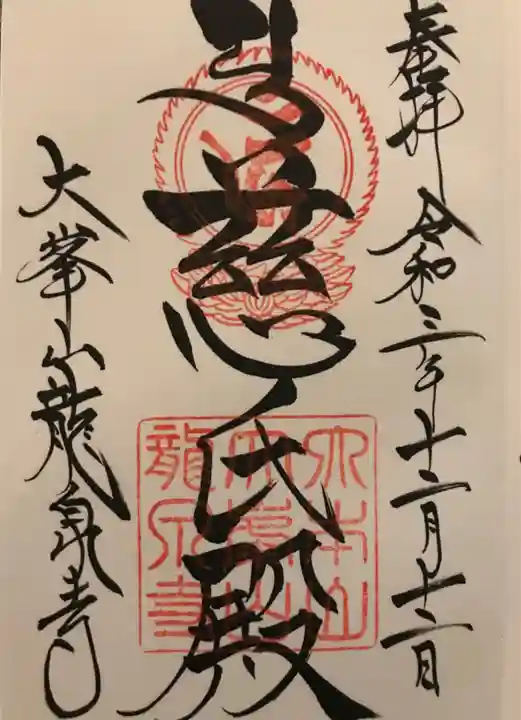 奉拝 令和三年十二月十二日
慈氏殿
大峯山龍泉寺
大本山
大峯山
龍泉寺